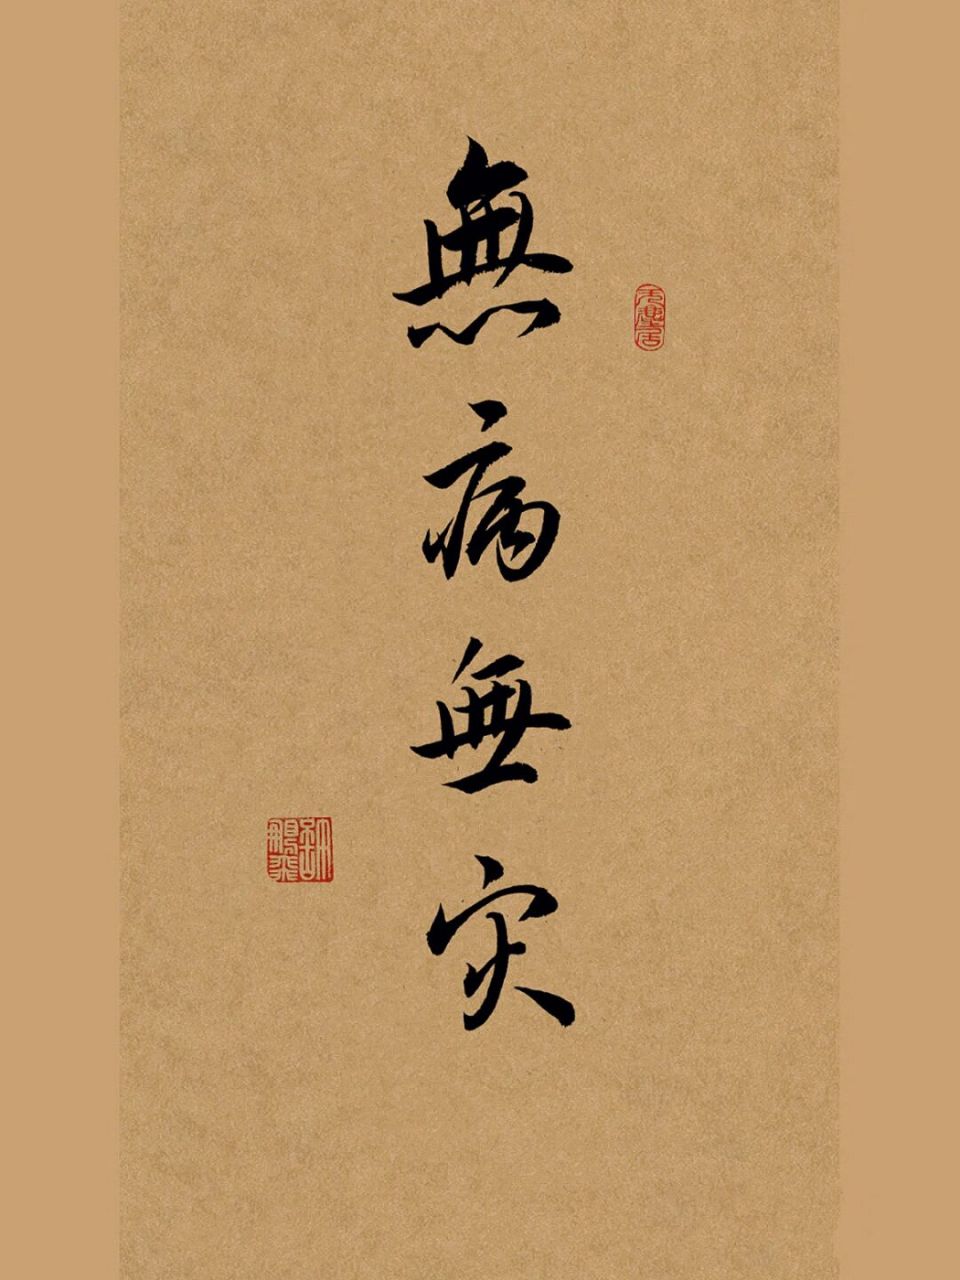 無病無灾